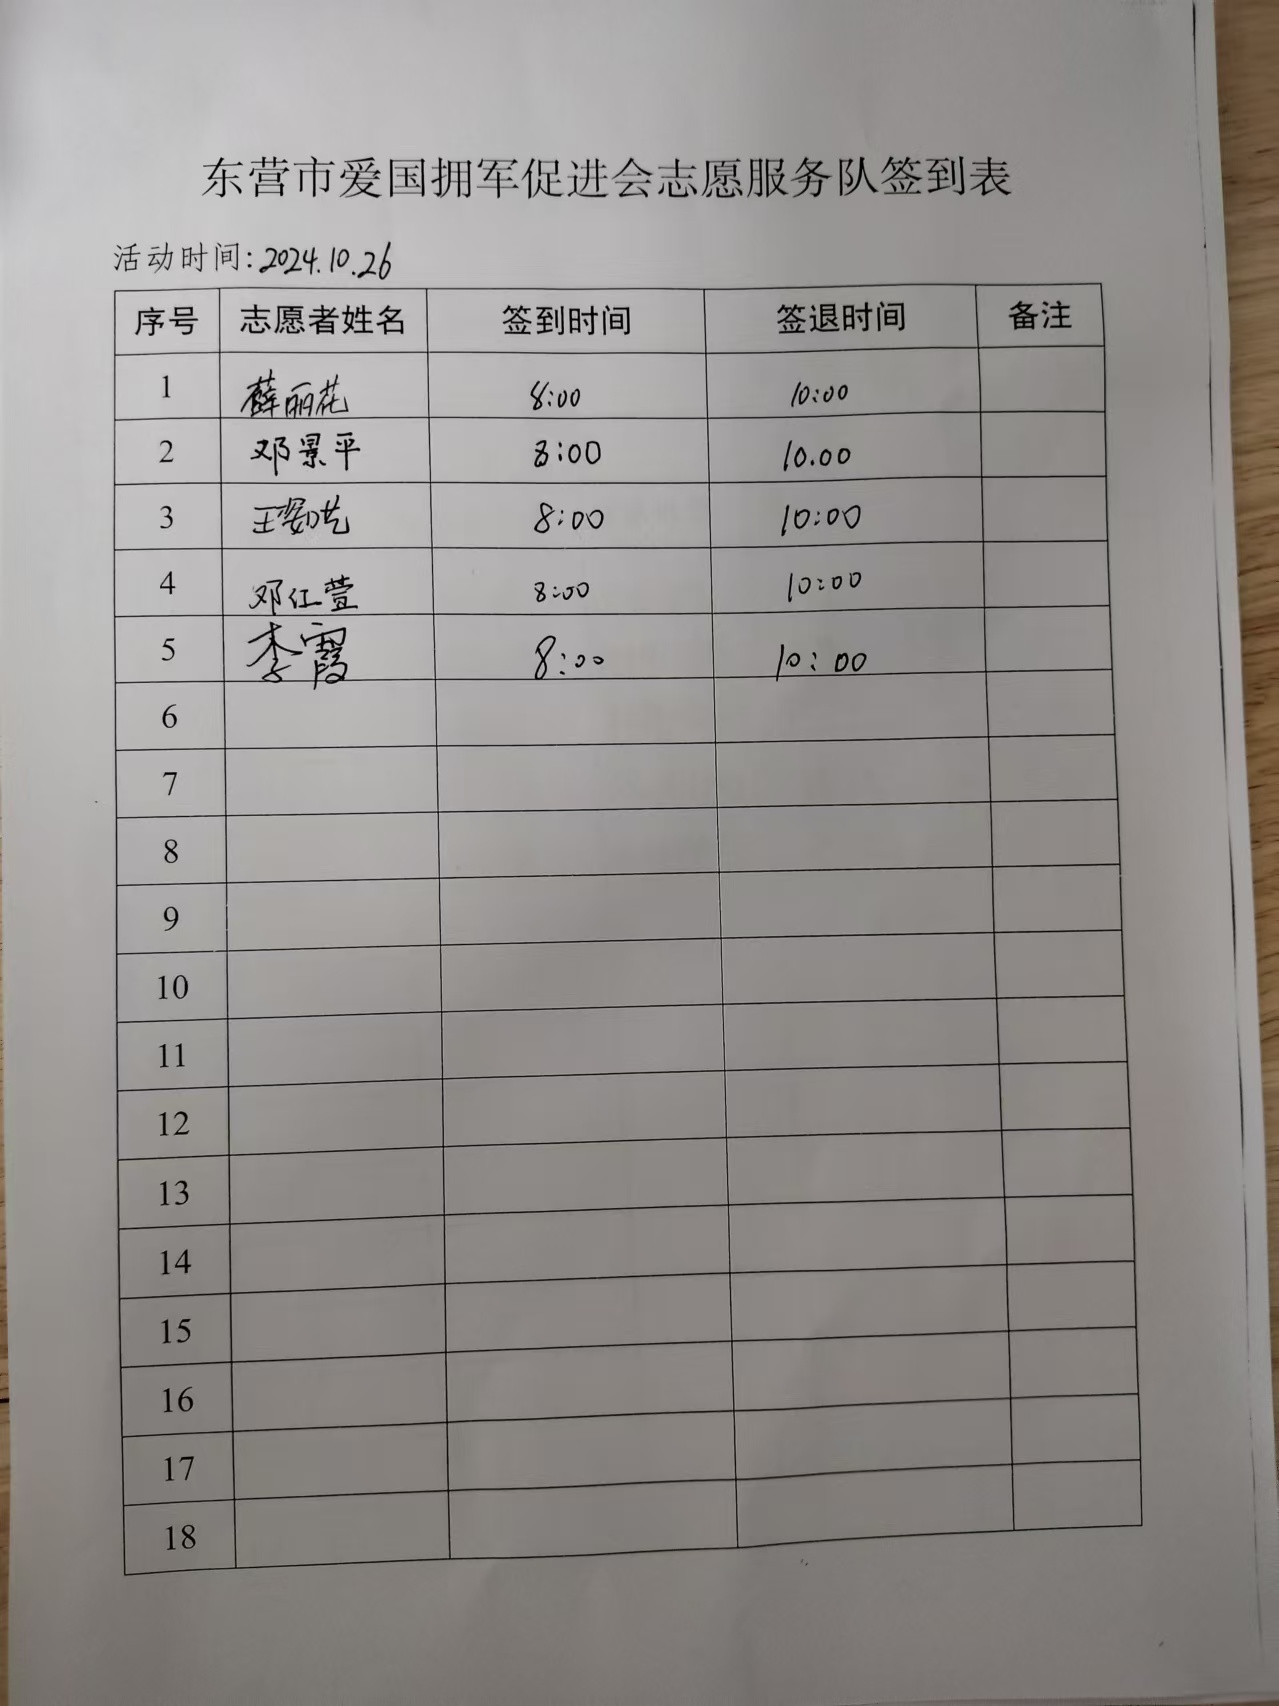 东营市爱国拥军促进会志愿服务队签到表
活动时间:2024.10.26
序号 志愿者姓名 签到时间 签退时间 备注
1 薛丽花 8:00 10:00
2 邓景平 8:00 10.00
3 王 8:00 10:00
4 邓红萱 8:00 10:00
5 李霞 8:00 10:00
6
7
8
9
10
11
12
13
14
15
16
17
18